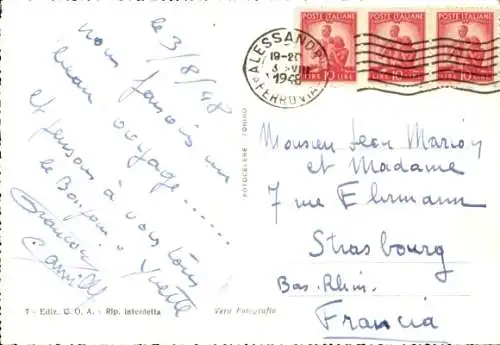 le 3/8/48
nous faisons un
beau voyage......
et pensons à vous tous
le Bonjour
Yvette
Camille
7 - Ediz. G. O. A. - Rip. interdetta
Vera Fotografia
FOTOCELERE TORINO
POSTE ITALIANE
POSTE ITALIANE
POSTE ITALIANE
LIRE 10 LIRE
10 LIRE
10 LIRE
ALESSANDRIA
19-20
3 VIII
1948
FERROVIA
Monsieur Jean
et Madame
7 rue Ehrmann
Strasbourg
Bas. Rhin.
Francia